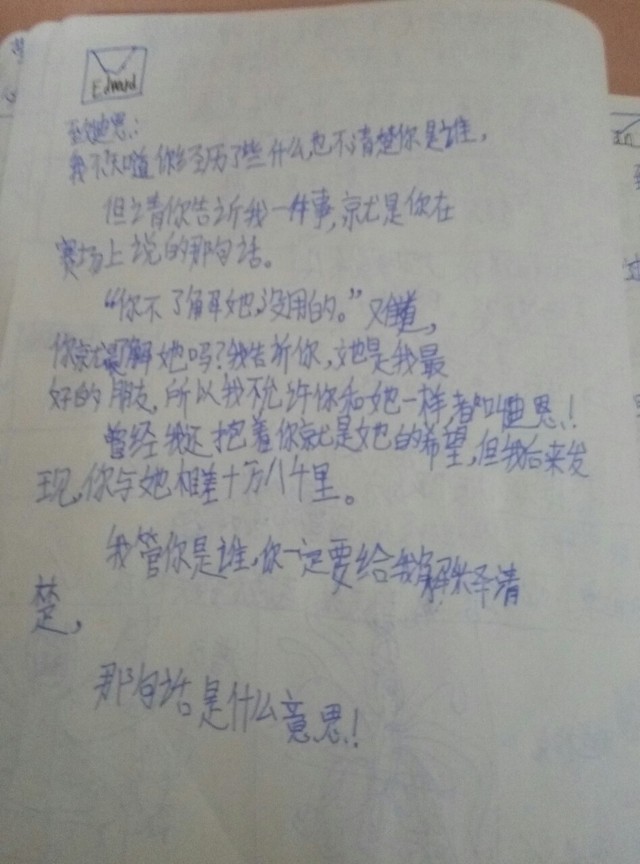 Edmd
致迪思：
我不知道你经历了些什么，也不清楚你是谁，
但请你告诉我一件事，就是你在
赛场上说的那句话。
“你不了解她，没用的。”又谁，
你就了解她吗？我告诉你，她是我最
好的朋友，所以我不允许你和她一样都叫迪思！
曾经我还抱着你就是她的希望，但我后来发
现，你与她相差十万八千里。
我管你是谁，你一定要给我解释清
楚，
那句话是什么意思！